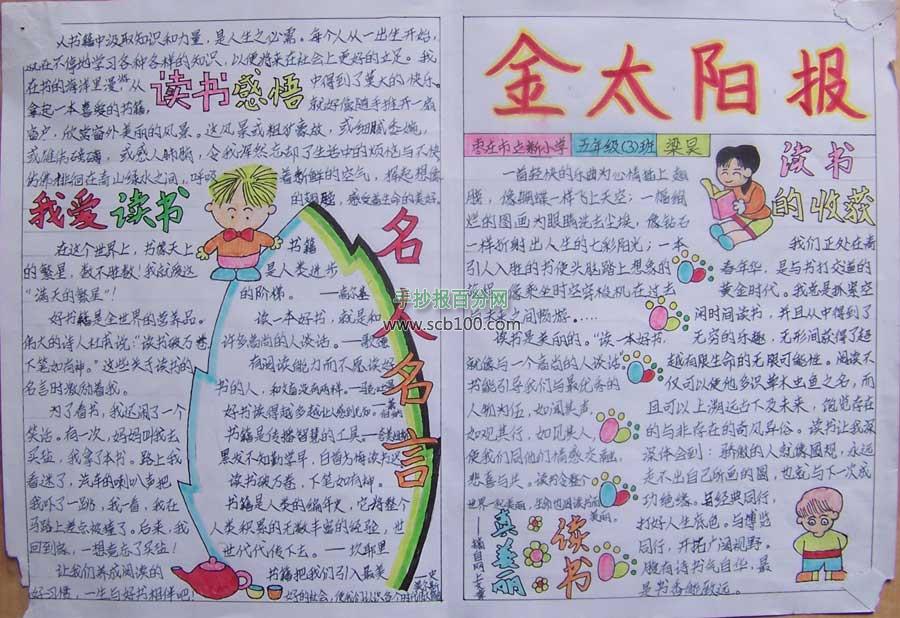 金太阳报
枣庄市立新小学 五年级(3)班 梁昊
从书籍中汲取知识和力量，是人生之必需。每个人从一出生开始，
就在不停地学习各种各样的知识，以便将来在社会上更好的立足。我
在书的海洋里漫游，从
中得到了莫大的快乐。
读书感悟
拿起一本喜爱的书籍，
就好像随手推开一扇
窗户，欣赏窗外美丽的风景。这风景或粗犷豪放，或细腻委婉，
或感人肺腑，令我浑然忘却了生活中的烦恼与不快
着新鲜的空气，
感受着生命的美好。
我爱读书
在这个世界上，书像天上
的繁星，数不胜数！我就爱这
“满天的繁星”！
好书籍是全世界的营养品。
伟大的诗人杜甫说“读书破万卷
下笔如有神”。这些关于读书的
名言时时激励着我。
为了看书，我还闹了一个
笑话。有一次，妈妈叫我去
买盐，我拿了本书。路上我
看迷了，汽车的喇叭声把
我吓了一跳，我一看，我在
马路上差点被撞了。后来，我
回到家，一想竟忘了买盐！
让我们养成阅读的
好习惯，一生与好书相伴吧！
名人名言
书籍
是人类进步
的阶梯。
读一本好书，就是和
许多高尚的人谈话。——歌德
有阅读能力而不愿读好
书的人，和文盲没有两样。
好书读得越多越让人感到无知。
书籍是传播智慧的工具。
黑发不知勤学早，白首方悔读书迟
读书破万卷，下笔如有神。
书籍是人类的编年史，它将整个
人类积累的无数丰富的经验，世
世代代传下去。
书籍把我们引入最美
好的社会，使我们认识各个时代
一首轻快的乐曲为心情插上翅
膀，像蝴蝶一样飞上天空；一幅绚
烂的图画为眼睛洗去尘埃，像钻石
一样折射出人生的七彩阳光；一本
引人入胜的书使头脑踏上想象的
像乘坐时空穿梭机在过去
之间畅游。……
读书是美丽的。“读一本好书，
就像与一个高尚的人谈话”
书能引导我们与最优秀的
人物为伍，如闻其声，
如观其行，如见其人，
使我们同他们情感交融，
悲喜与共。读书会让整个
世界一起美丽，
美丽。
读书真美丽
读书的收获
我们正处在青
春年华，是与书打交道的
黄金时代。我总是抓紧空
闲时间读书，并且从中得到了
无穷的乐趣，无形间获得了超
越有限生命的无限可能性。阅读不
仅可以使他多识草木虫鱼之名，而
且可以上溯远古下及未来，饱览存在
的与非存在的奇风异俗。读书让我深
深体会到：骄傲的人就像圆规，永远
走不出自己所画的圆，也就与下一次成
功绝缘。与经典同行，
打好人生底色。与博览
同行，开拓广阔视野。
腹有诗书气自华，最
是书香能致远。
手抄报百分网
www.scb100.com